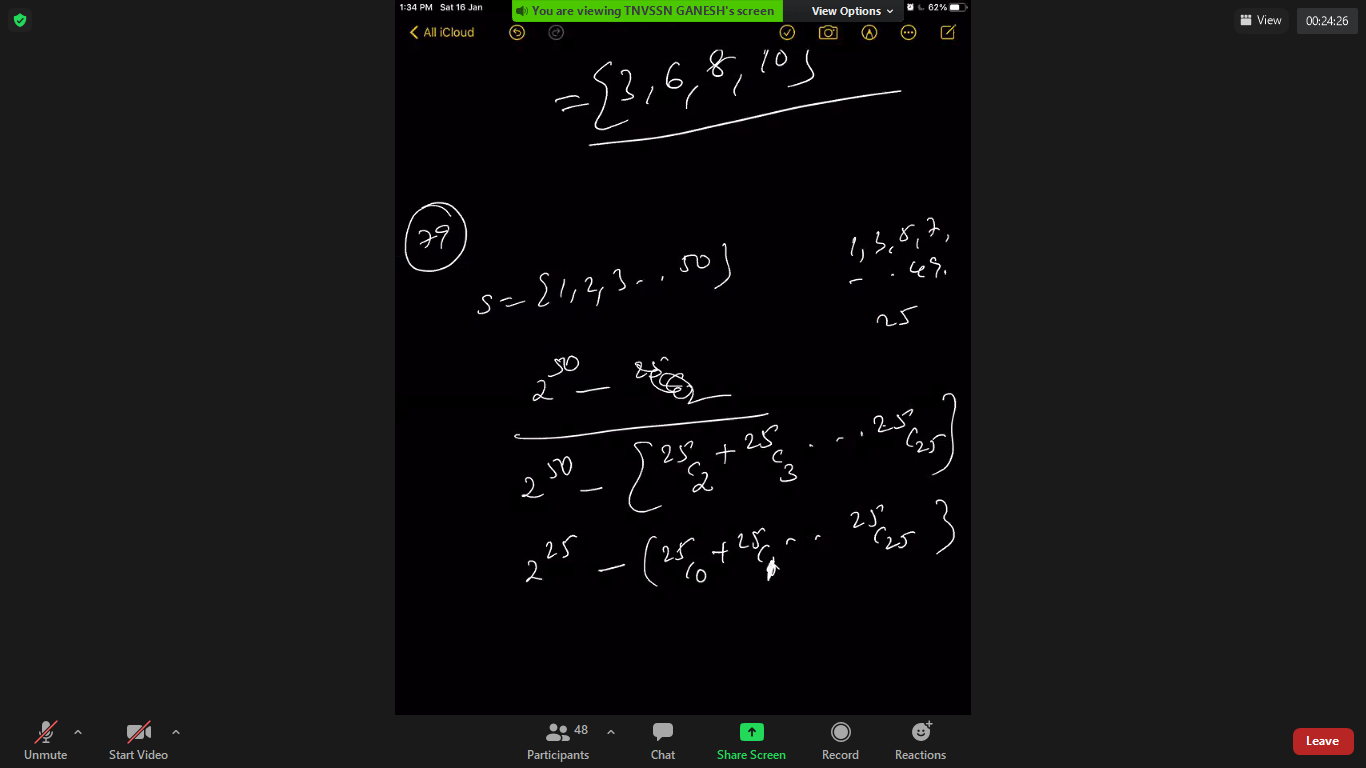 1:34 PM Sat 16 Jan
You are viewing TNVSSN GANESH's screen
View Options
62%
View
00:24:26
All iCloud
= {3, 6, 8, 10}
79
S = {1, 2, 3 . . . 50}
1, 3, 5, 7,
- . 49.
25
2^50 -
2^50 - [25C2 + 25C3 . - . 25C25]
2^25 - (25C0 + 25C . . . . 25C25}
Unmute
Start Video
Participants
48
Chat
Share Screen
Record
Reactions
Leave